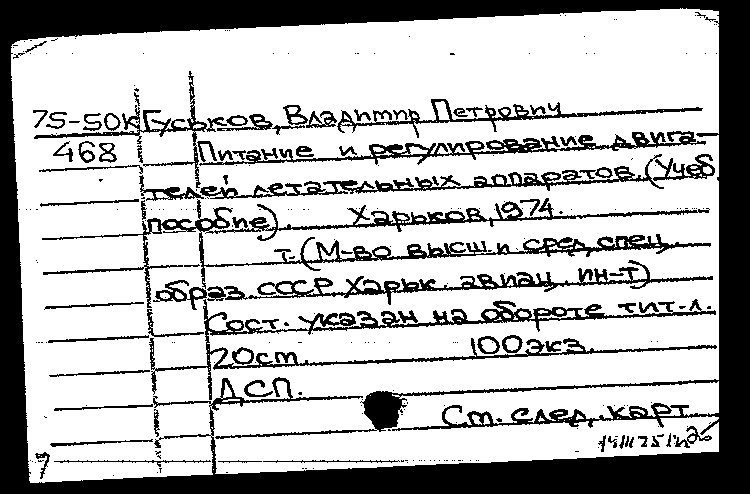 75-50К Гуськов, Владимир Петрович
468 Питание и регулирование двига-
телей летательных аппаратов. (Учеб.
пособие). Харьков, 1974.
т. (М-во высш и сред. спец.
образ. СССР Харьк. авиац. ин-т)
Сост. указан на обороте тит-л.
20ст. 100экз.
ДСП.
См. след. карт
7